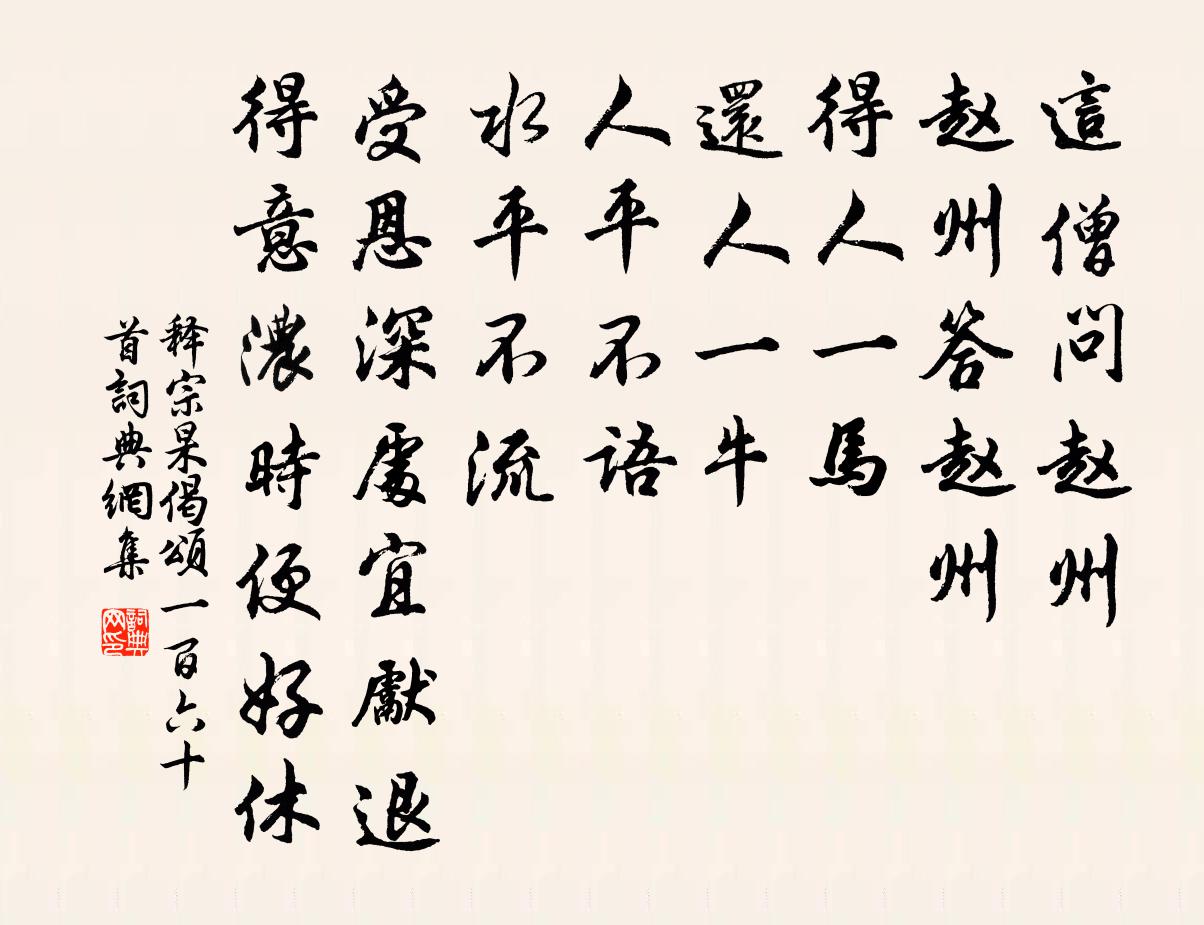 這僧問赵州
赵州答赵州
得人一馬
還人一牛
人平不語
水平不流
受恩深處宜獻退
得意濃時便好休
释宗杲偈頌一百六十
首詞典網集
詞典
网印